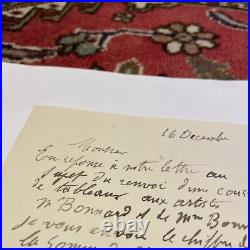 16 Decembre
Monsieur
En réponse à votre lettre au
sujet du renvoi d'une caisse
de tableaux aux artistes
Mr Bonnard et de Mme Bonn
je vous envoie le chiffre d
la somme